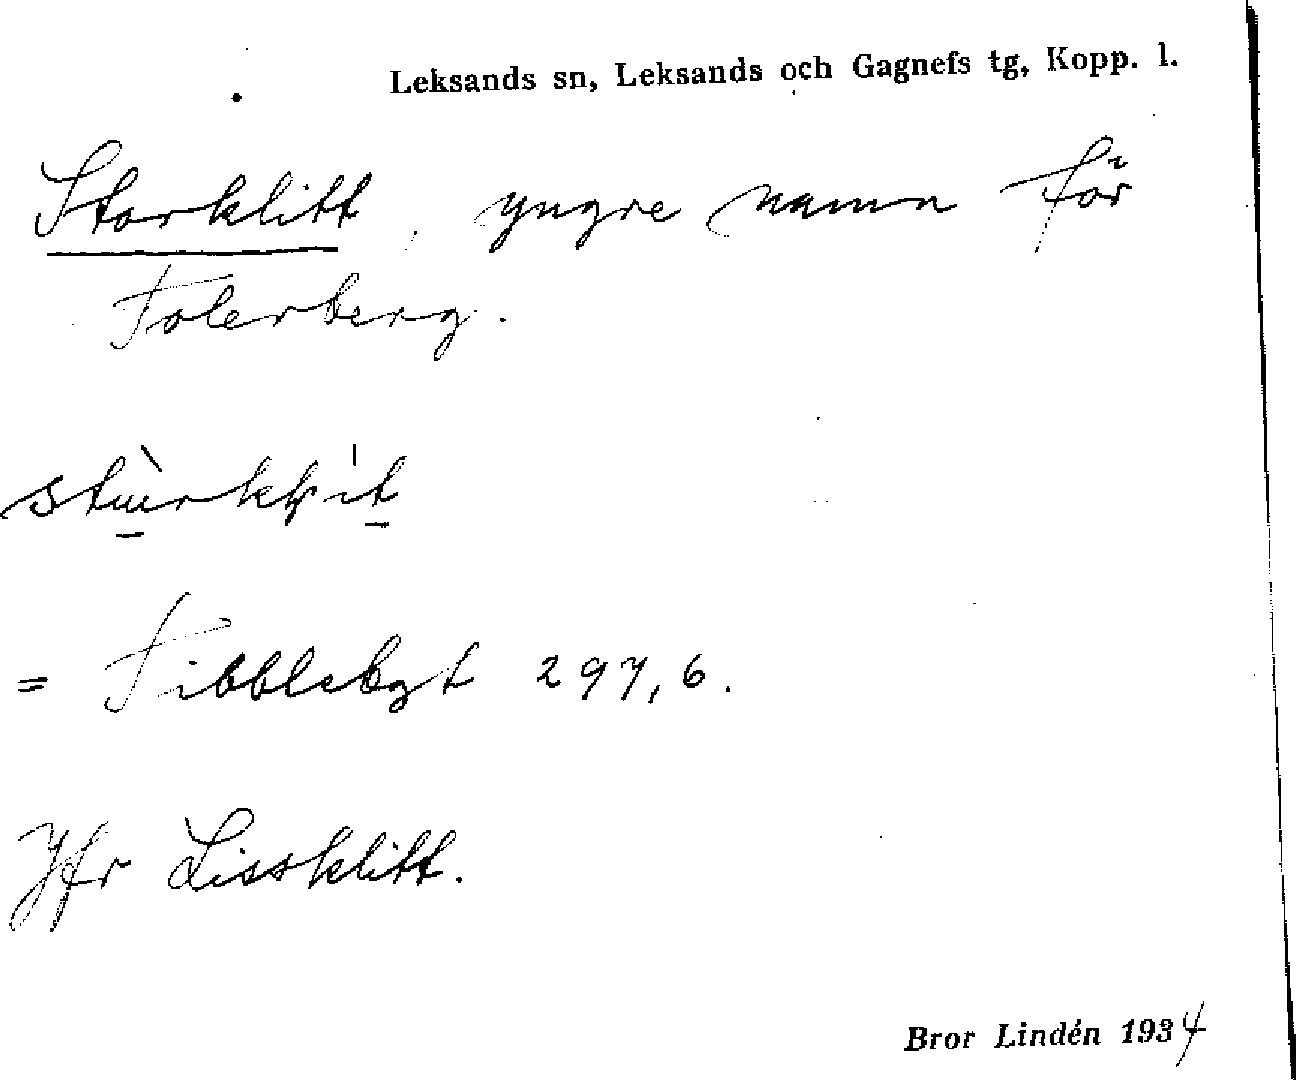 Leksands sn, Leksands och Gagnefs tg, Kopp. l.
Storklitt, yngre namn för
Folerberg.
= Fibblebgt 297,6.
Jfr Lissklitt.
Bror Lindén 1934